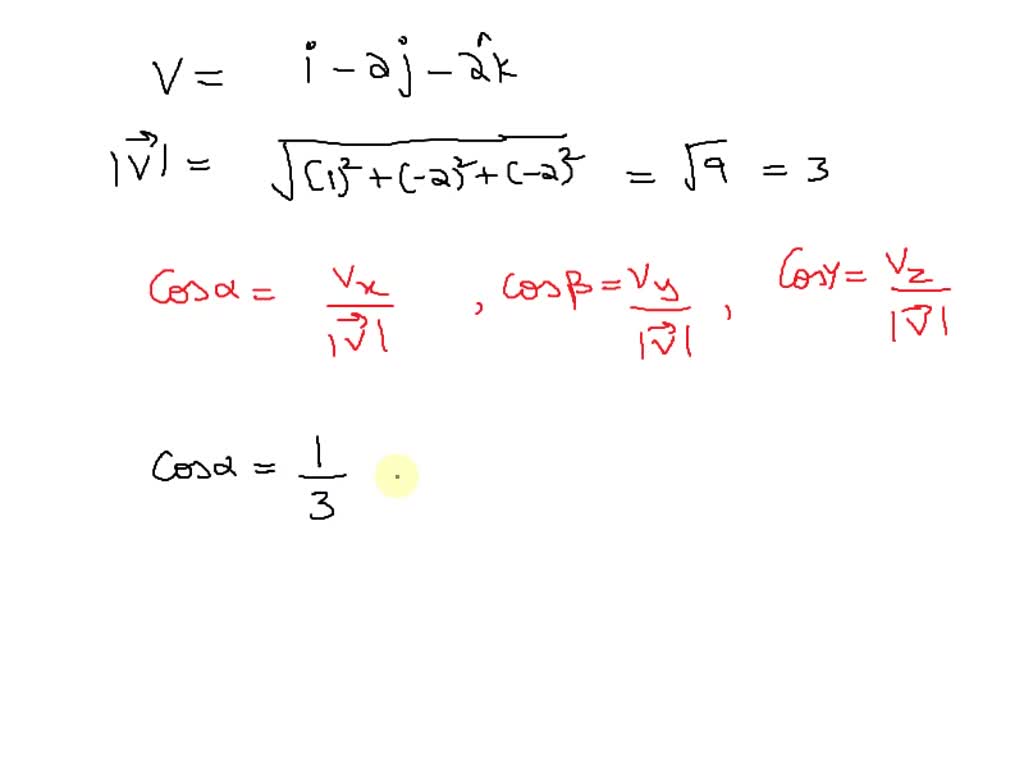 V = i - 2j - 2k̂
|V⃗| = √(1)² + (-2)² + (-2)² = √9 = 3
Cosα = Vx / |V⃗| , cosβ = Vy / |V⃗| , Cosγ = Vz / |V⃗|
Cosα = 1 / 3